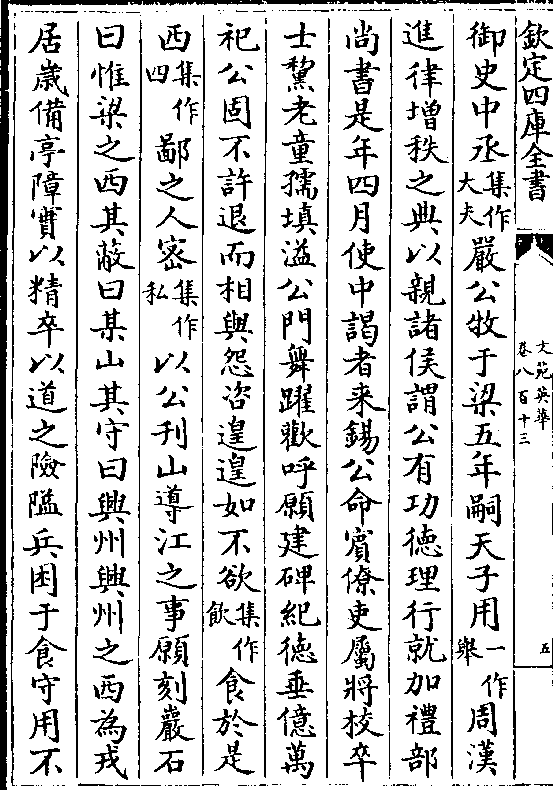 欽定四庫全書
文苑英華
卷八百十三
五
御史中丞集作大夫嚴公牧于梁五年嗣天子用一作舉周漢
進律增秩之典以親諸侯謂公有功德理行就加禮部
尚書是年四月使中謁者来錫公命賓僚吏屬將校卒
士黧老童孺填溢公門舞躍歡呼願建碑紀德垂億萬
祀公固不許退而相與怨咨遑遑如不欲集作飲食於是
西集作四鄙之人密集作私以公刋山導江之事願刻巖石
曰惟梁之西其蔽曰某山其守曰興州興州之西為戎
居歳備亭障實以精卒以道之險隘兵困于食守用不